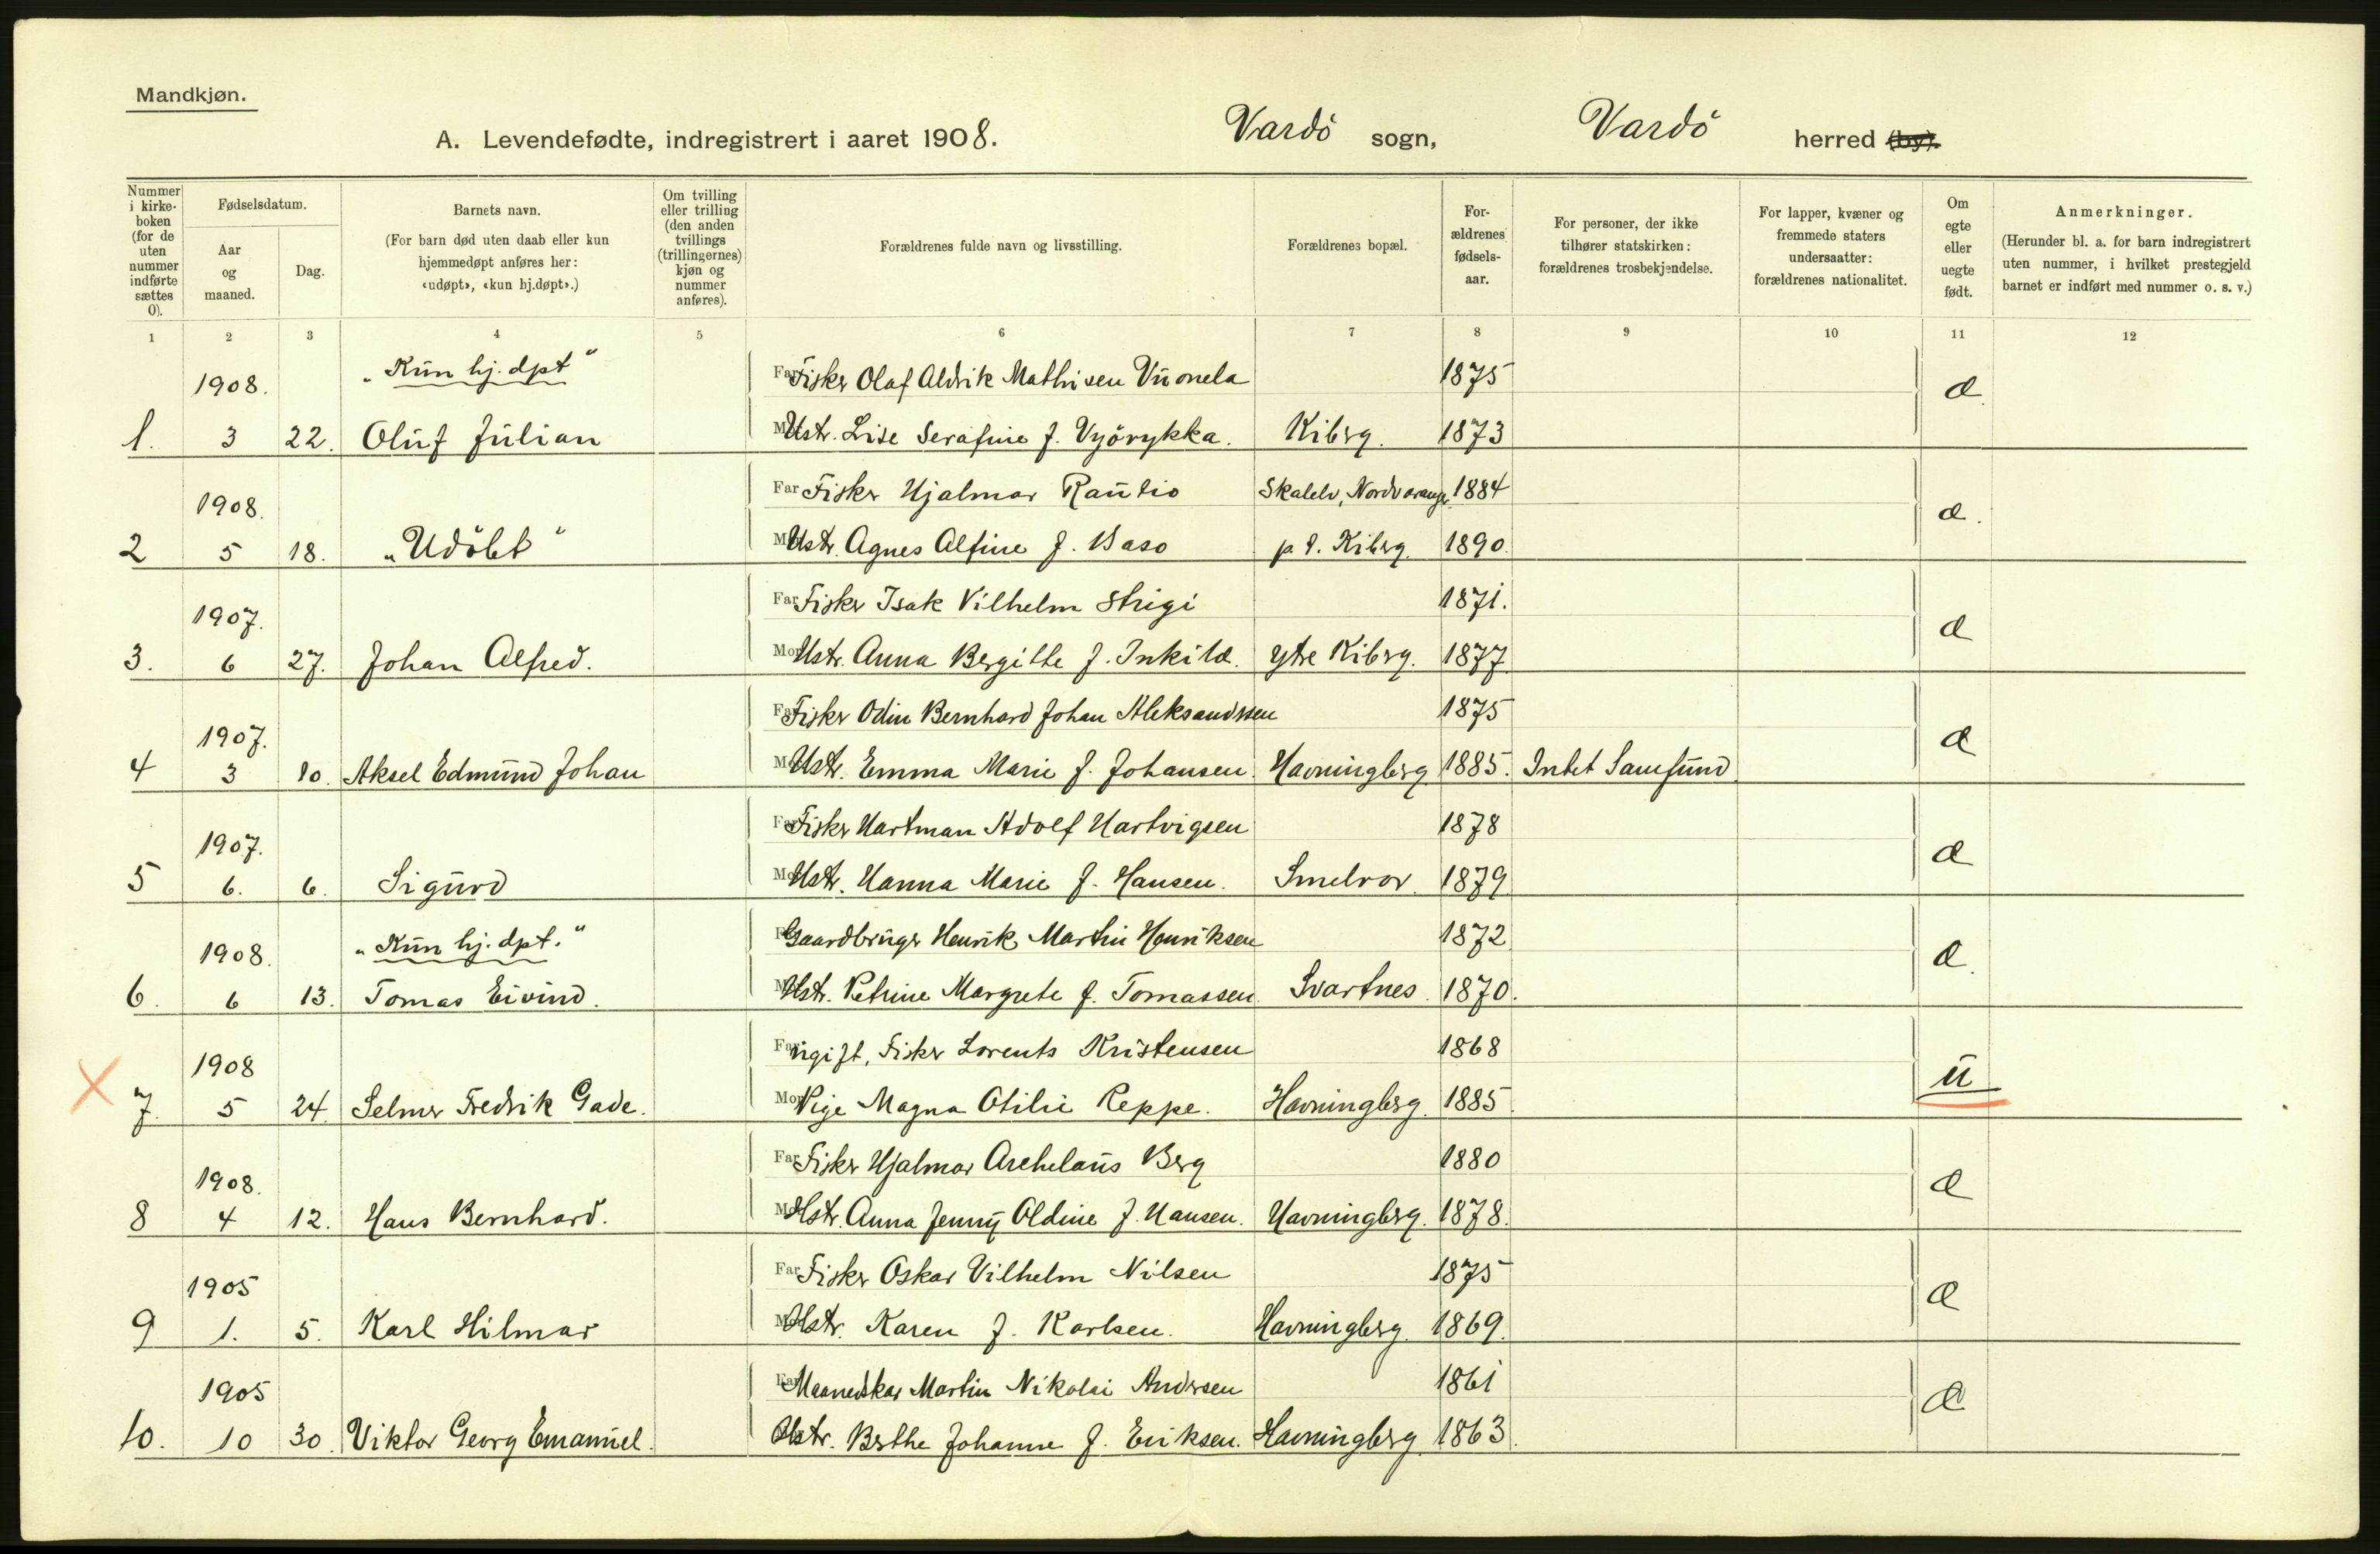 Mandkjøn.
A. Levendefødte, indregistrert i aaret 1908. Vardö sogn, Vardö herred (by).
Nummer i kirke-boken (for de uten nummer indførte sættes 0).
Fødselsdatum.
Aar og maaned.
Dag.
Barnets navn.
(For barn død uten daab eller kun hjemmedøpt anføres her: «udøpt», «kun hj.døpt».)
Om tvilling eller trilling (den anden tvillings (trillingernes) kjøn og nummer anføres).
Forældrenes fulde navn og livsstilling.
Forældrenes bopæl.
For-ældrenes fødsels-aar.
For personer, der ikke tilhører statskirken: forældrenes trosbekjendelse.
For lapper, kvæner og fremmede staters undersaatter: forældrenes nationalitet.
Om egte eller uegte født.
Anmerkninger.
(Herunder bl. a. for barn indregistrert uten nummer, i hvilket prestegjeld barnet er indført med nummer o. s. v.)
1 2 3 4 5 6 7 8 9 10 11 12
1908. „Kun hj. dpt“ Far Fisker Olaf Aldrik Mathisen Vuonela 1875 æ
1. 3 22. Oluf Julian Mor Hstr. Lise Serafine f. Vyörykka. Kiberg. 1873
1908. Far Fisker Hjalmar Rautio Skalelv, Nordvaranger 1884 æ.
2 5 18. „Udöbt“ Mor Hstr. Agnes Alfine f. Baso p. t. Kiberg. 1890.
1907. Far Fisker Isak Vilhelm Strigi 1871. æ
3. 6 27. Johan Alfred. Mor Hstr. Anna Bergitte f. Inkilæ. Ytre Kiberg. 1877
1907. Far Fisker Odin Bernhard Johan Aleksandersen 1875 æ
4 3 10. Aksel Edmund Johan Mor Hstr. Emma Marie f. Johansen. Havningberg 1885. Intet Samfund
1907. Far Fisker Hartman Adolf Hartvigsen 1878 æ
5 6. 6. Sigurd Mor Hstr. Hanna Marie f. Hansen. Smelror. 1879
1908. „Kun hj. dpt.“ Far Gaardbruger Henrik Martin Henriksen 1872 æ.
6. 6 13. Tomas Eivind. Mor Hstr. Petrine Margrete f. Tomassen. Svartnes. 1870.
1908 Far ugift, Fisker Lorents Kristensen 1868 u
7. 5 24 Selmer Fredrik Gade. Mor Pige Magna Otilie Reppe. Havningberg. 1885.
1908. Far Fisker Hjalmar Archelaus Berg 1880 æ
8 4 12. Hans Bernhard. Mor Hstr. Anna Jenny Oldine f. Hansen. Havningberg. 1878.
1905 Far Fisker Oskar Vilhelm Nilsen 1875 æ
9 1. 5. Karl Hilmar Mor Hstr. Karen f. Karlsen. Havningberg. 1869.
1905 Far Maanedskar Martin Nikolai Andersen 1861 æ
10. 10 30. Viktor Georg Emanuel. Hstr. Berthe Johanne f. Eriksen. Havningberg 1863.